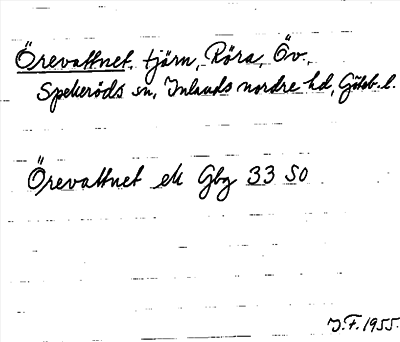 Örevattnet, tjärn, Röra, Öv.,
Spekeröds sn, Inlands nordre hd, Göteb. l.
Örevattnet ek Gbg 33 SO
J.F. 1955.